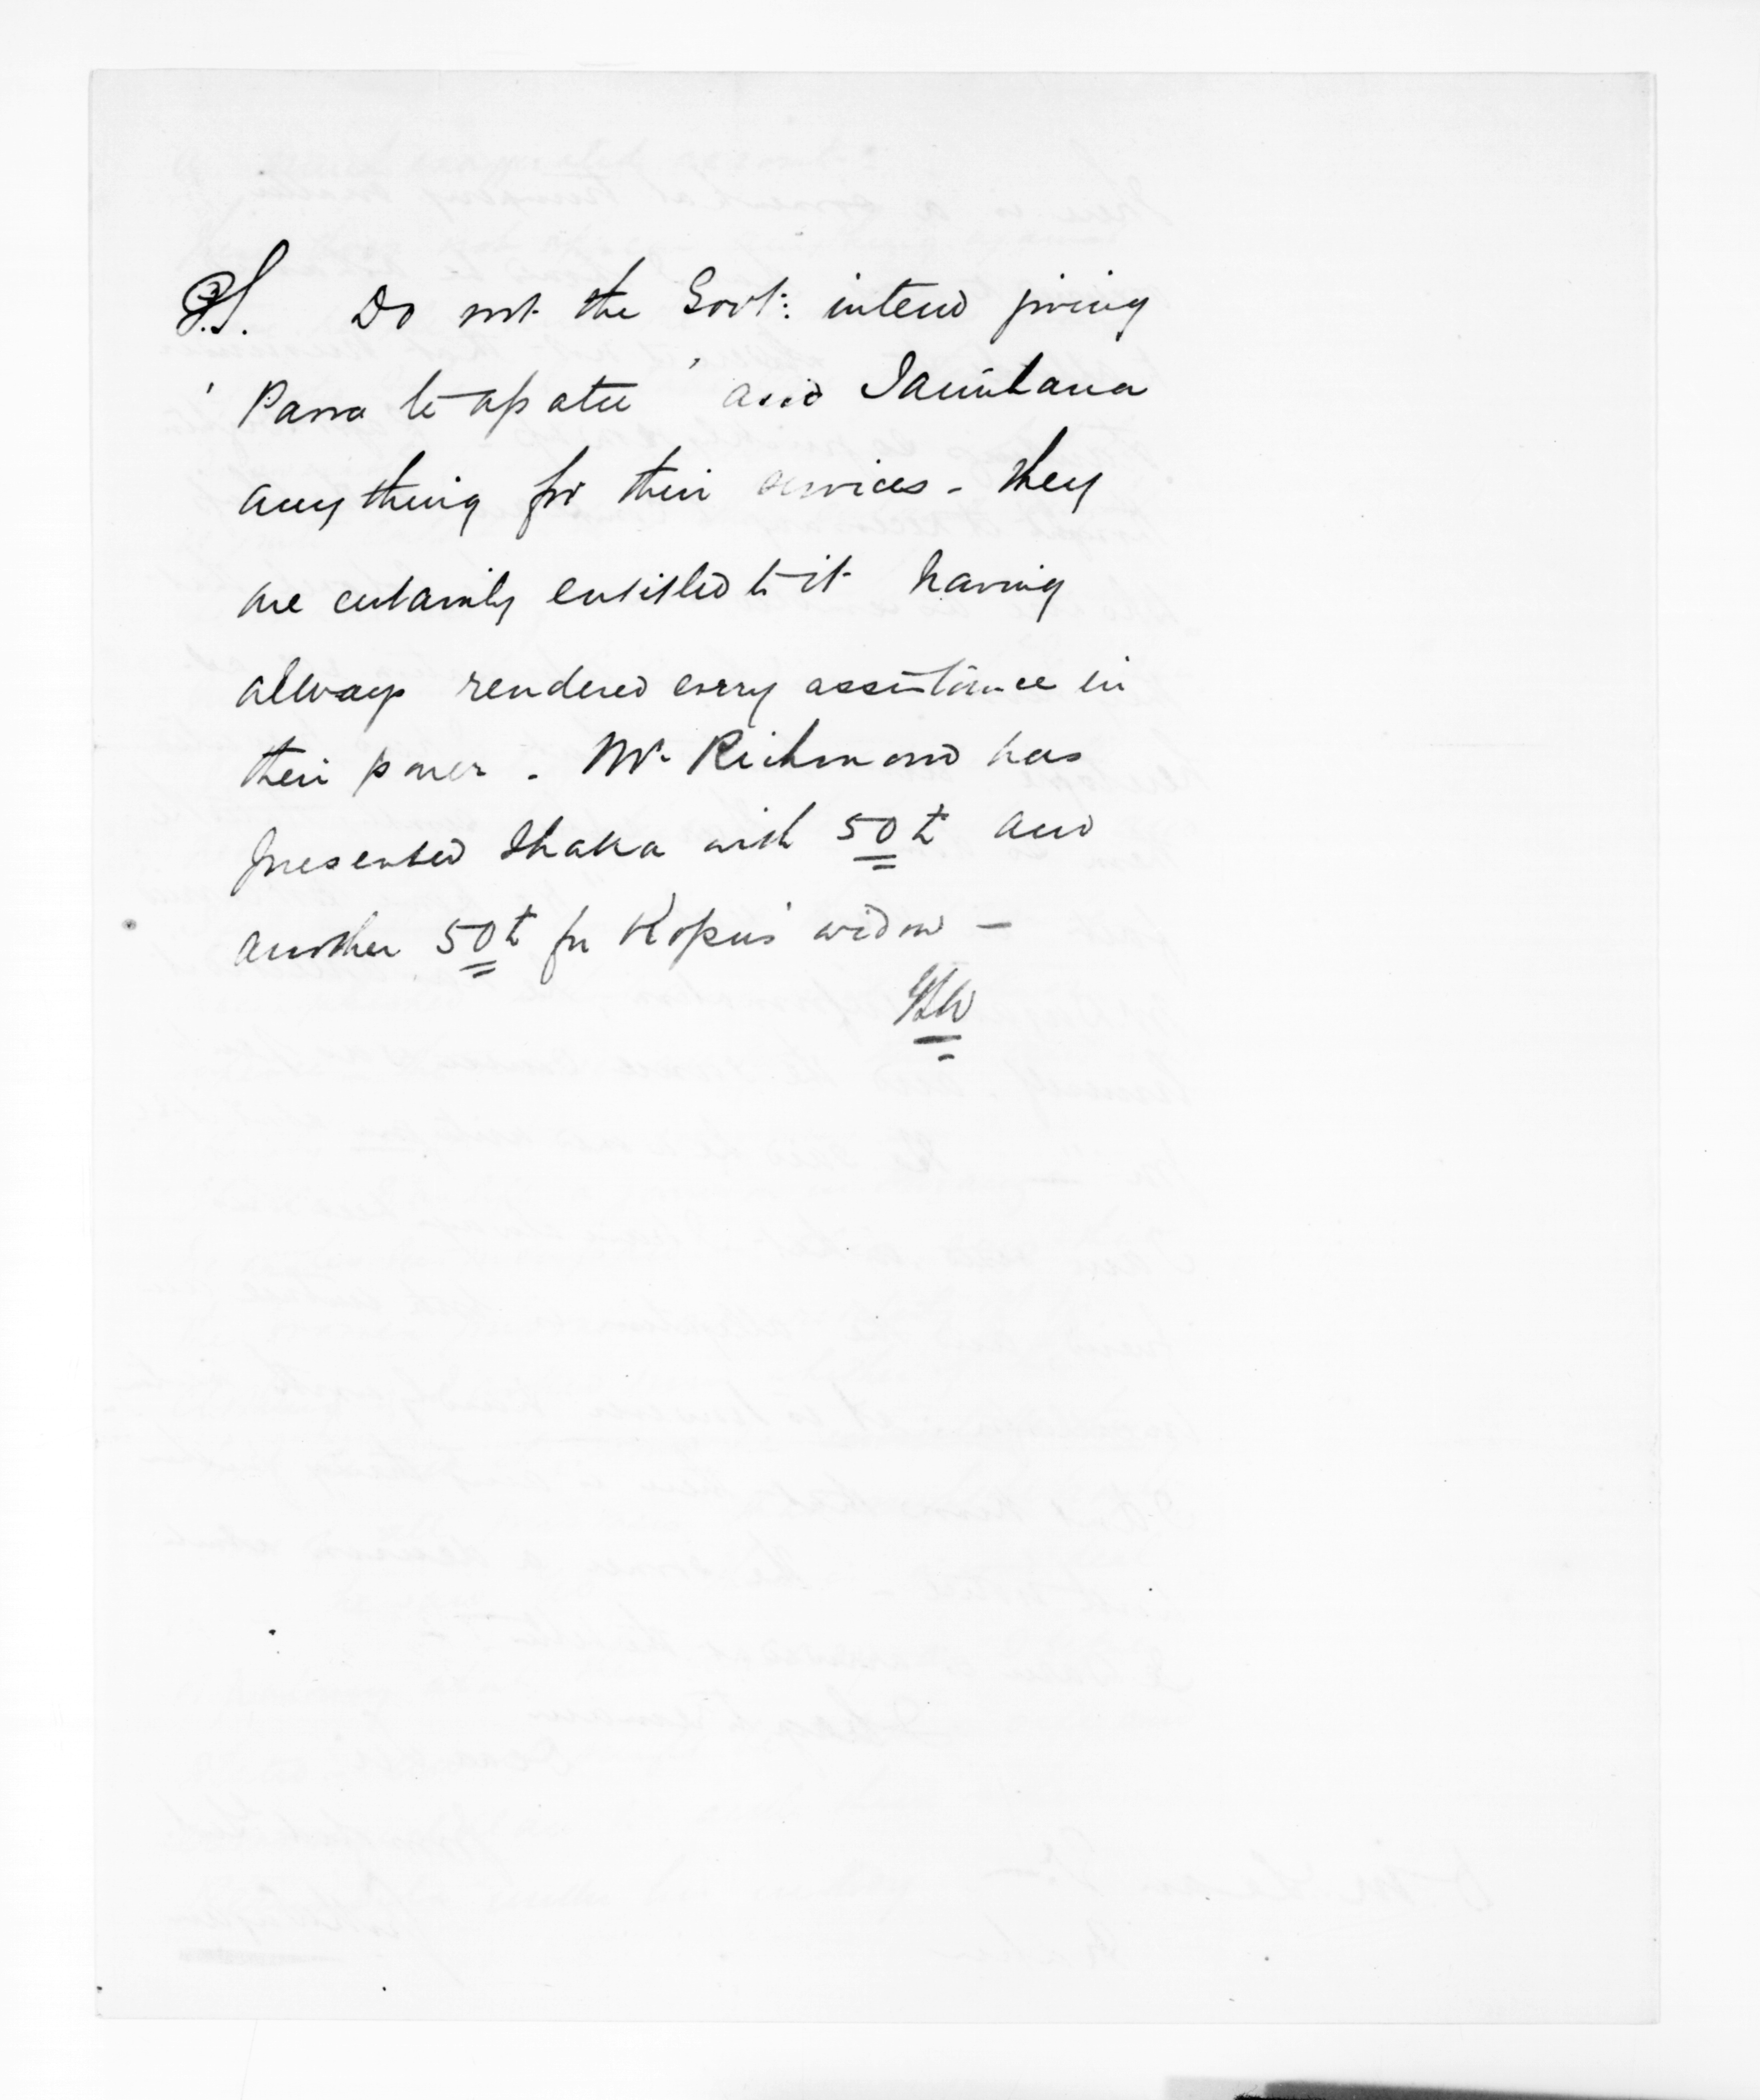 P.S. Do not the Govt: intend giving
' Parra te apatu ' and Tamihana
any thing for their services - they
are certainly entitled to it having
always rendered every assistance in
their power . Mr Richmond has
presented Ihaka with 50£ and
another 50£ for Kopu's widow —